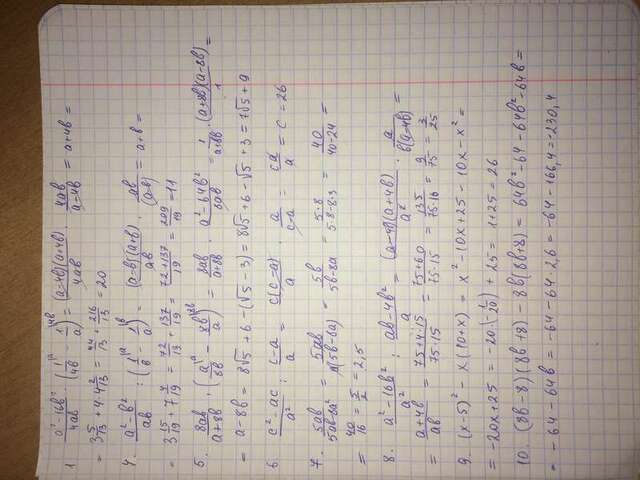 1 (a²-16b²)/(4ab) : (1/(4b)|ᵃ - 1/a|⁴ᵇ) = ((a-4b)(a+4b))/(4ab) · (4ab)/(a-4b) = a+4b =
= 3 5/13 + 4·4 2/13 = 44/13 + 216/13 = 20
4. (a²-b²)/(ab) : (1/b|ᵃ - 1/a|ᵇ) = ((a-b)(a+b))/(ab) · ab/(a-b) = a+b =
= 3 15/19 + 7 4/19 = 72/13 + 137/19 = (72+137)/19 = 209/19 = 11
5. (8ab)/(a+8b) · (a/(8b)|ᵃ - (8b)/a|⁸ᵇ) = (8ab)/(a+8b) · (a²-64b²)/(8ab) = 1/(a+8b) · ((a+8b)(a-8b))/1 =
= a-8b = 8√5 + 6 - (√5 - 3) = 8√5 + 6 - √5 + 3 = 7√5 + 9
6. (c²-ac)/a² : (c-a)/a = (c(c-a))/a · a/(c-a) = ca/a = c = 26
7. (5ab)/(5ab-8a²) = (5ab)/(a(5b-8a)) = (5b)/(5b-8a) = (5·8)/(5·8-8·3) = 40/(40-24) =
= 40/16 = 5/2 = 2,5
8. (a²-16b²)/a² : (ab-4b²)/a = ((a-4b)(a+4b))/a² · a/(b(a-4b)) =
= (a+4b)/(ab) = (75+4·15)/(75·15) = (75+60)/(75·15) = 135/(75·15) = 9/75 = 3/25
9. (x-5)² - x(10+x) = x² - 10x + 25 - 10x - x² =
= -20x + 25 = -20·(-1/20) + 25 = 1+25 = 26
10. (8b-8)(8b+8) - 8b(8b+8) = 64b² - 64 - 64b² - 64b =
= -64 - 64b = -64 - 64·2,6 = -64 - 166,4 = -230,4